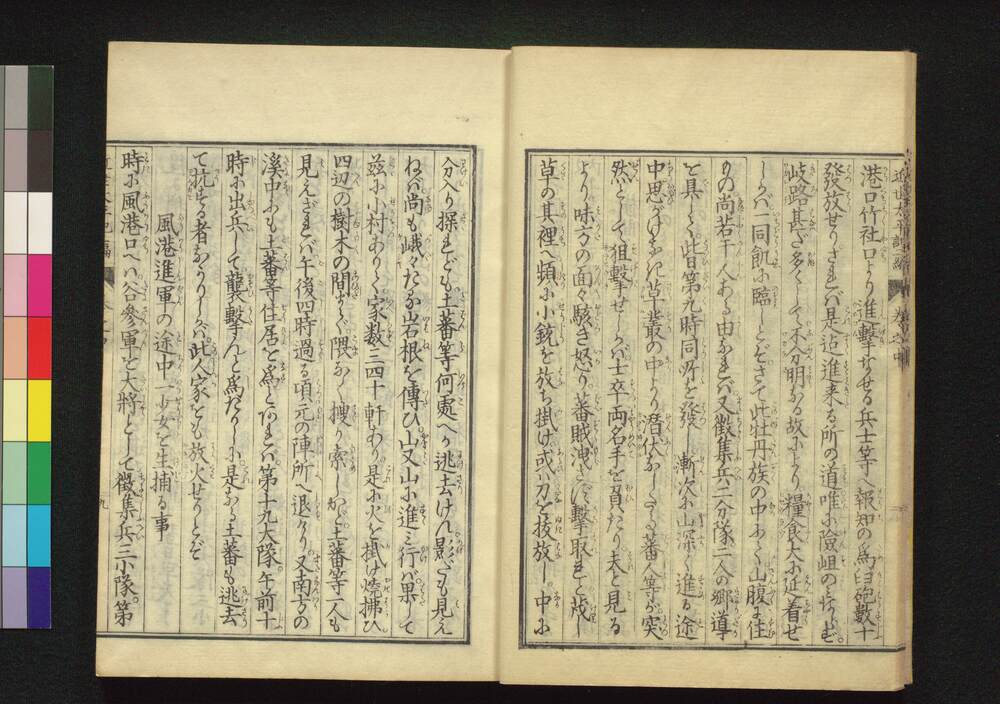 港口竹社口より進撃なせる兵士等へ報知の爲臼砲數十
發放せりされバ是迄進来る所の道唯に險岨のミならず
岐路甚だ多くして不分明なる故により糧食大に延着せ
しかバ一同飢に臨しとぞさて此牡丹族の中にて山腹に住
もの尚若干人ある由なれバ又徴集兵二分隊二人の郷導
を具して此日第九時同所を發し漸次に山深く進る途
中思ひがけなき草叢の中より潜伏なしたる蕃人等が突
然として狙撃せしかバ士卒両名手を負たり夫と見る
より味方の面々駭き怒り蕃賊洩さず撃取れと成し
草の其裡へ頻に小銃を放ち掛け或ハ刀を抜放し中に
分入り探れども土蕃等何處へか逃去けん影だも見え
ねバ尚も峨々たる岩根を傳ひ山又山に進ミ行バ果して
茲に小村ありて家数三四十軒あり是に火を掛け焼拂ひ
四辺の樹木の間まで隈なく捜り索しかど土蕃等一人も
見えざれバ午後四時過る頃元の陣所へ退けり又南方の
溪中にも土蕃等住居を爲とあれバ第十九大隊午前十
時に出兵して襲撃んと爲たりしに是なる土蕃も逃去
て抗する者なかりしかバ此人家をも放火せりとぞ
風港進軍の途中一少女を生捕る事
時に風港口へハ谷參軍を大將として徴集兵三小隊第
九